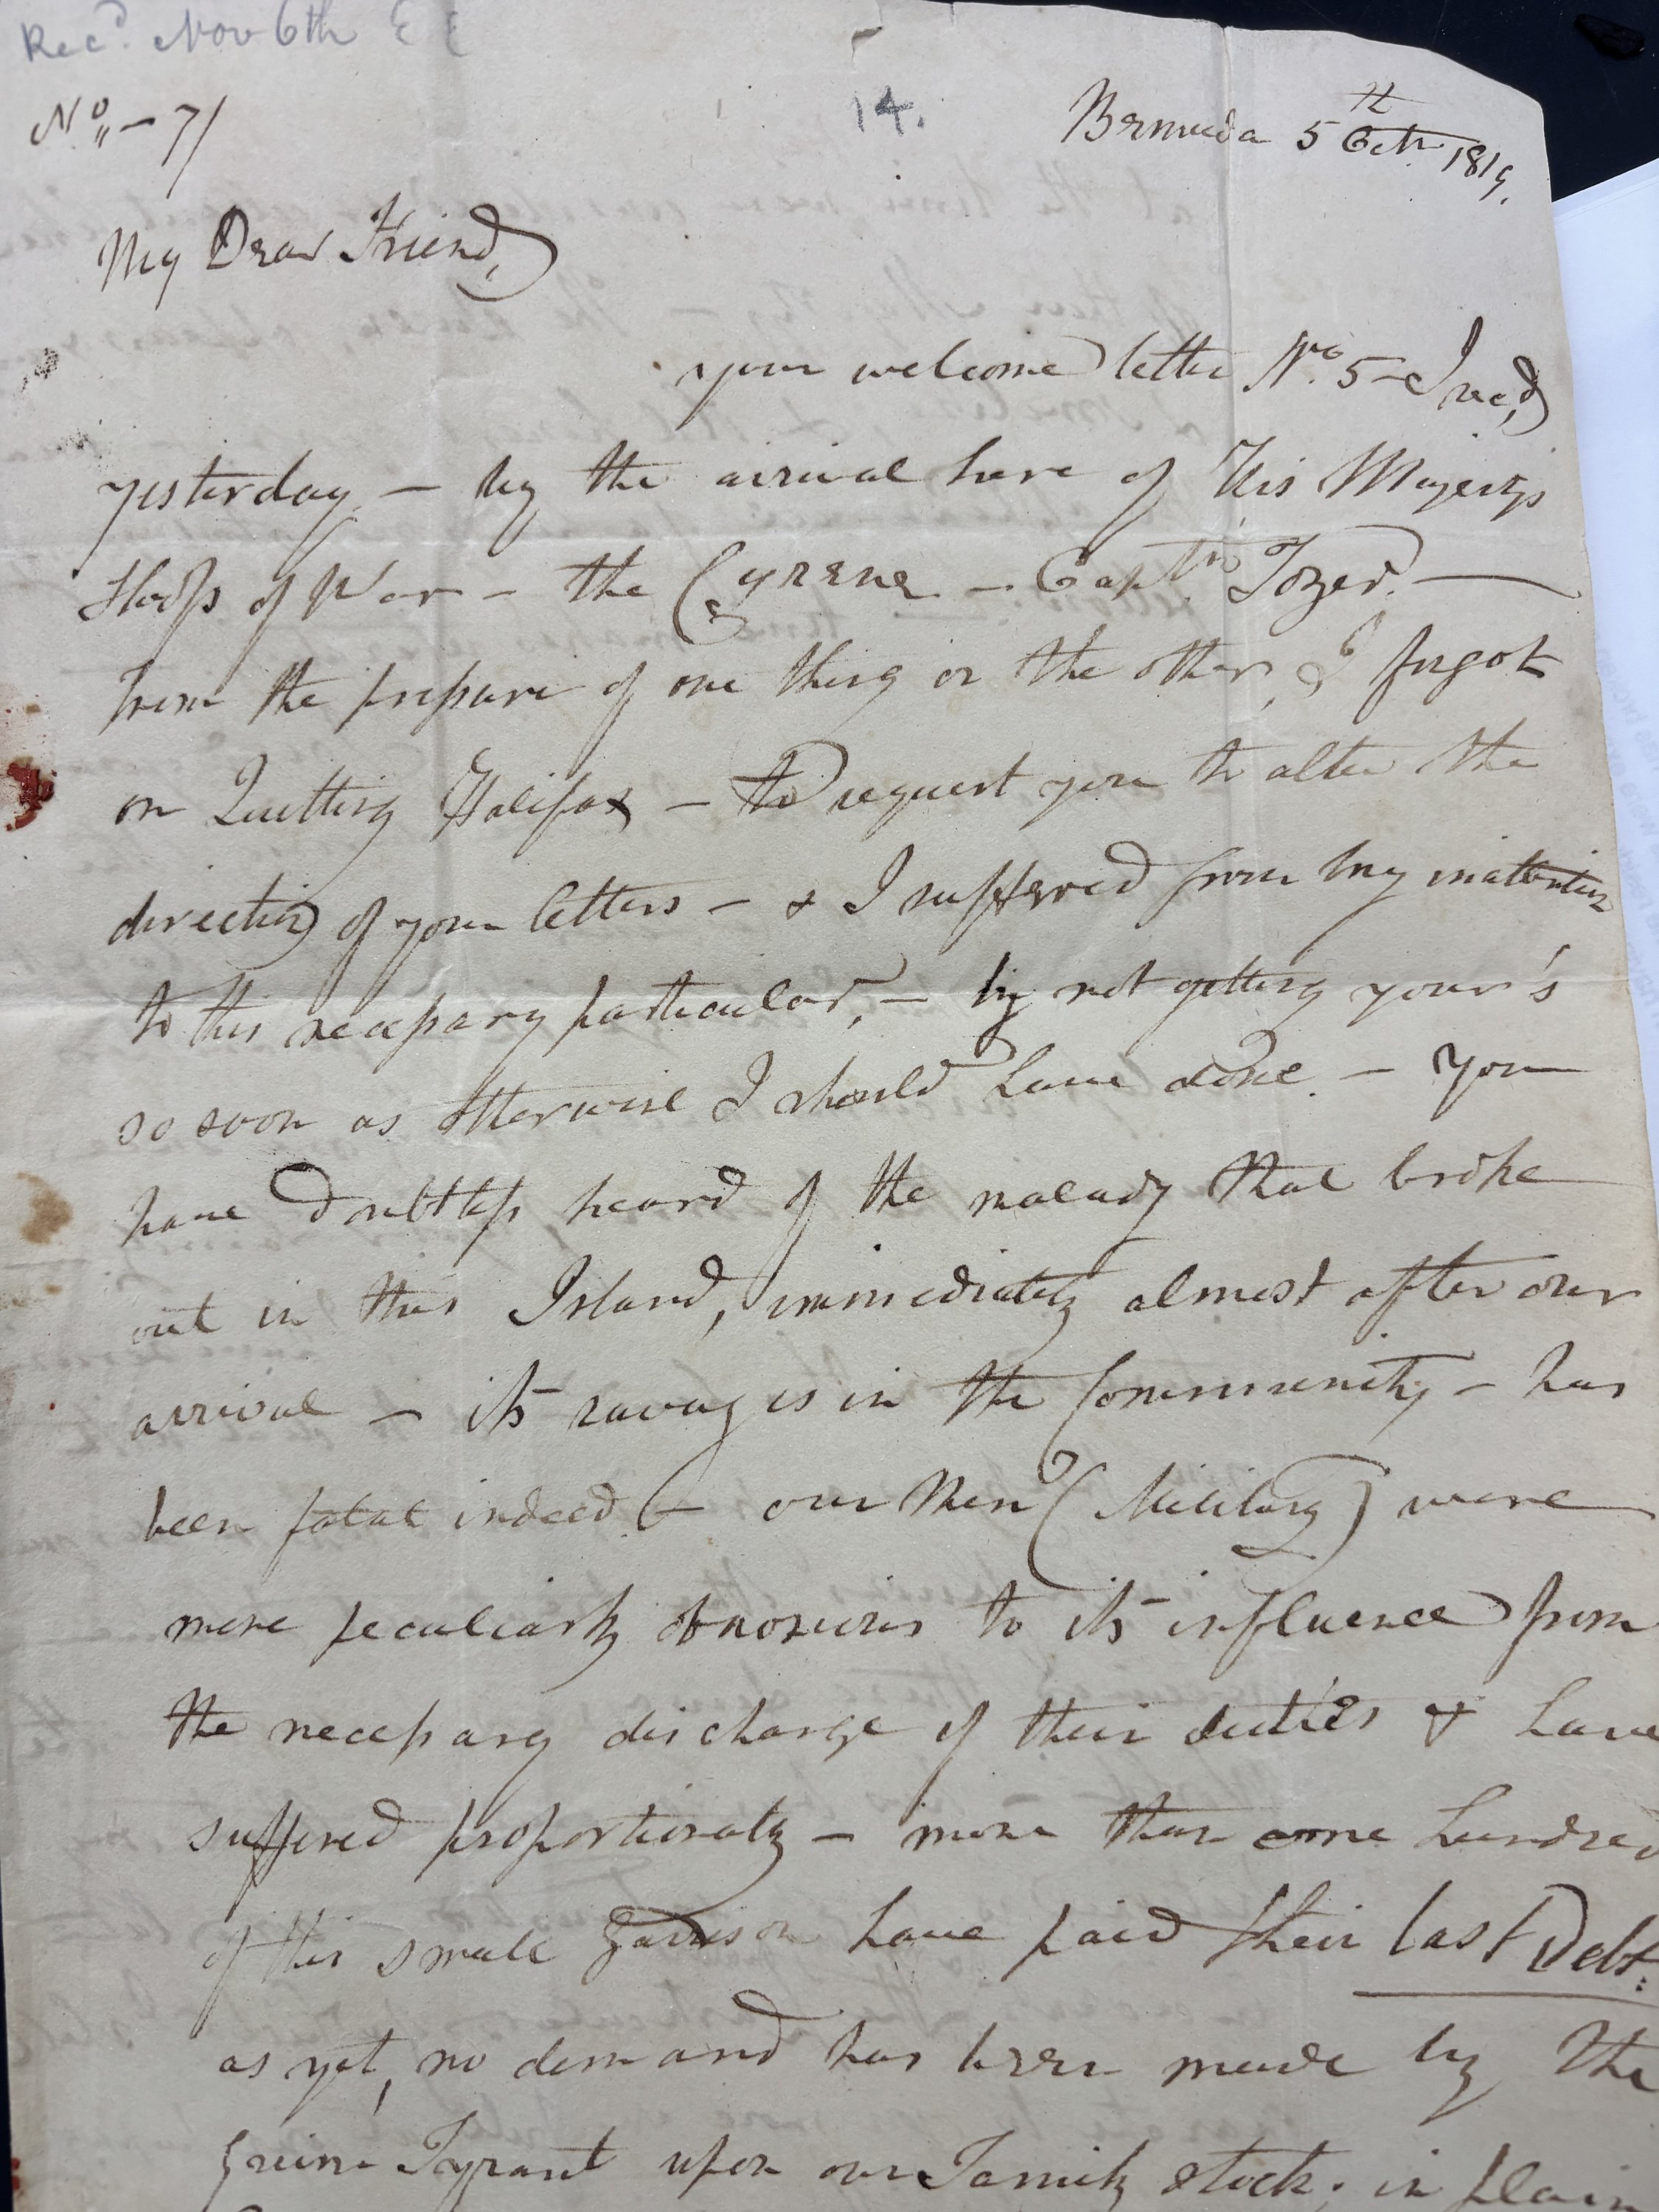 Rec.d Nov 6th E E
No. - 71
14.
Bermuda 5th Octr. 1819.
My Dear Friend,
your welcome letter No. 5 - I recd,
yesterday - by the arrival here of His Majesty's
Sloop of War - the Cyrene - Captn. Tozer. -
from the pressure of one thing or the other, I forgot
on Quitting Halifax - to request you to alter the
direction of your letters - & I suffered from my inattention
to this necessary particular, - by not getting your's
so soon as otherwise I should have done - You
have doubtless heard of the malady that broke
out in this Island, immediately almost after our
arrival - its ravages in the Community - has
been fatal indeed - our Men (Military) were
more peculiarly obnoxious to its influence from
the necessary discharge of their duties & have
suffered proportionately - more than one hundred
of this small Garrison have paid their last Debt:
as yet, no demand has been made by the
Grim Tyrant upon our Family stock; in plain